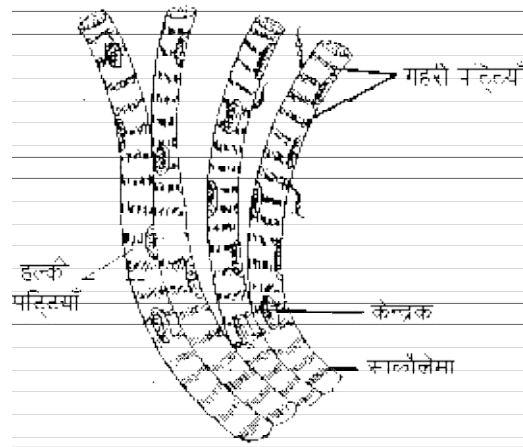 गहरी पट्टियाँ
हल्की
पट्टियाँ
केन्द्रक
सार्कोलेमा